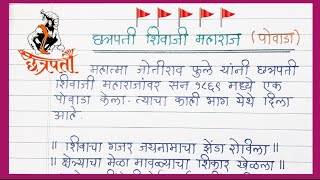 छत्रपती शिवाजी महाराज (पोवाडा)
छत्रपती
महात्मा जोतीराव फुले यांनी छत्रपती
शिवाजी महाराजांवर सन १८६९ मध्ये एक
पोवाडा केला. त्याचा काही भाग येथे दिला
आहे.
॥ शिवाचा गजर जयनामाचा झेंडा रोविला ॥
॥ क्षेत्र्याचा मेळा मावळ्याचा शिकार खेळला ॥